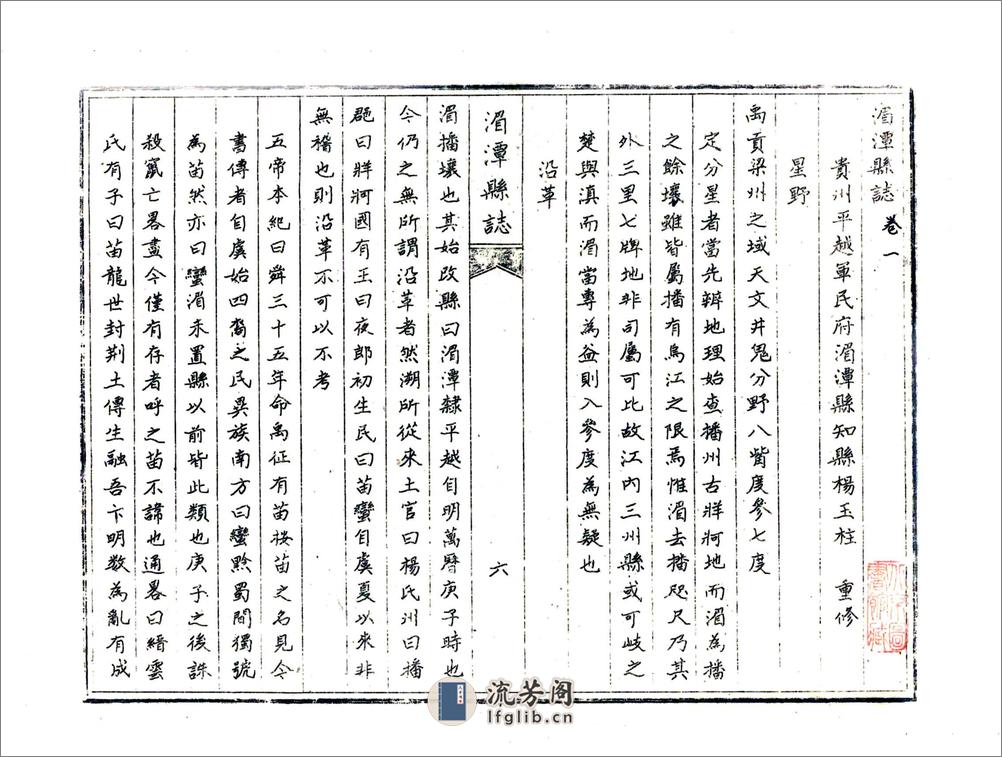 湄潭縣誌 卷一
貴州平越軍民府湄潭縣知縣楊玉柱 重修
星野
禹貢梁州之域天文井鬼分野入觜度參七度
定分星者當先辨地理始查播州古牂牁地而湄為播
之餘壤雖皆屬播有烏江之限焉惟湄去播咫尺乃其
外三里七牌地非司屬可比故江內三州縣或可歧之
楚與滇而湄當專為益則入參度為無疑也
沿革
湄潭縣誌
六
湄播壤也其始改縣曰湄潭隸平越自明萬曆庚子時也
今仍之無所謂沿革者然溯所從來土官曰楊氏州曰播
郡曰牂牁國有王曰夜郎初生民曰苗蠻自虞夏以來非
無稽也則沿革不可以不考
五帝本紀曰舜三十五年命禹征有苗按苗之名見今
書傳者自虞始四裔之民異族南方曰蠻黔蜀間獨號
為苗然亦曰蠻湄未置縣以前皆此類也庚子之後誅
殺竄亡畧盡今僅有存者呼之苗不諱也通畧曰縉雲
氏有子曰苗龍世封荆土傳生融吾卞明数為亂有成
流芳阁
lfglib.cn